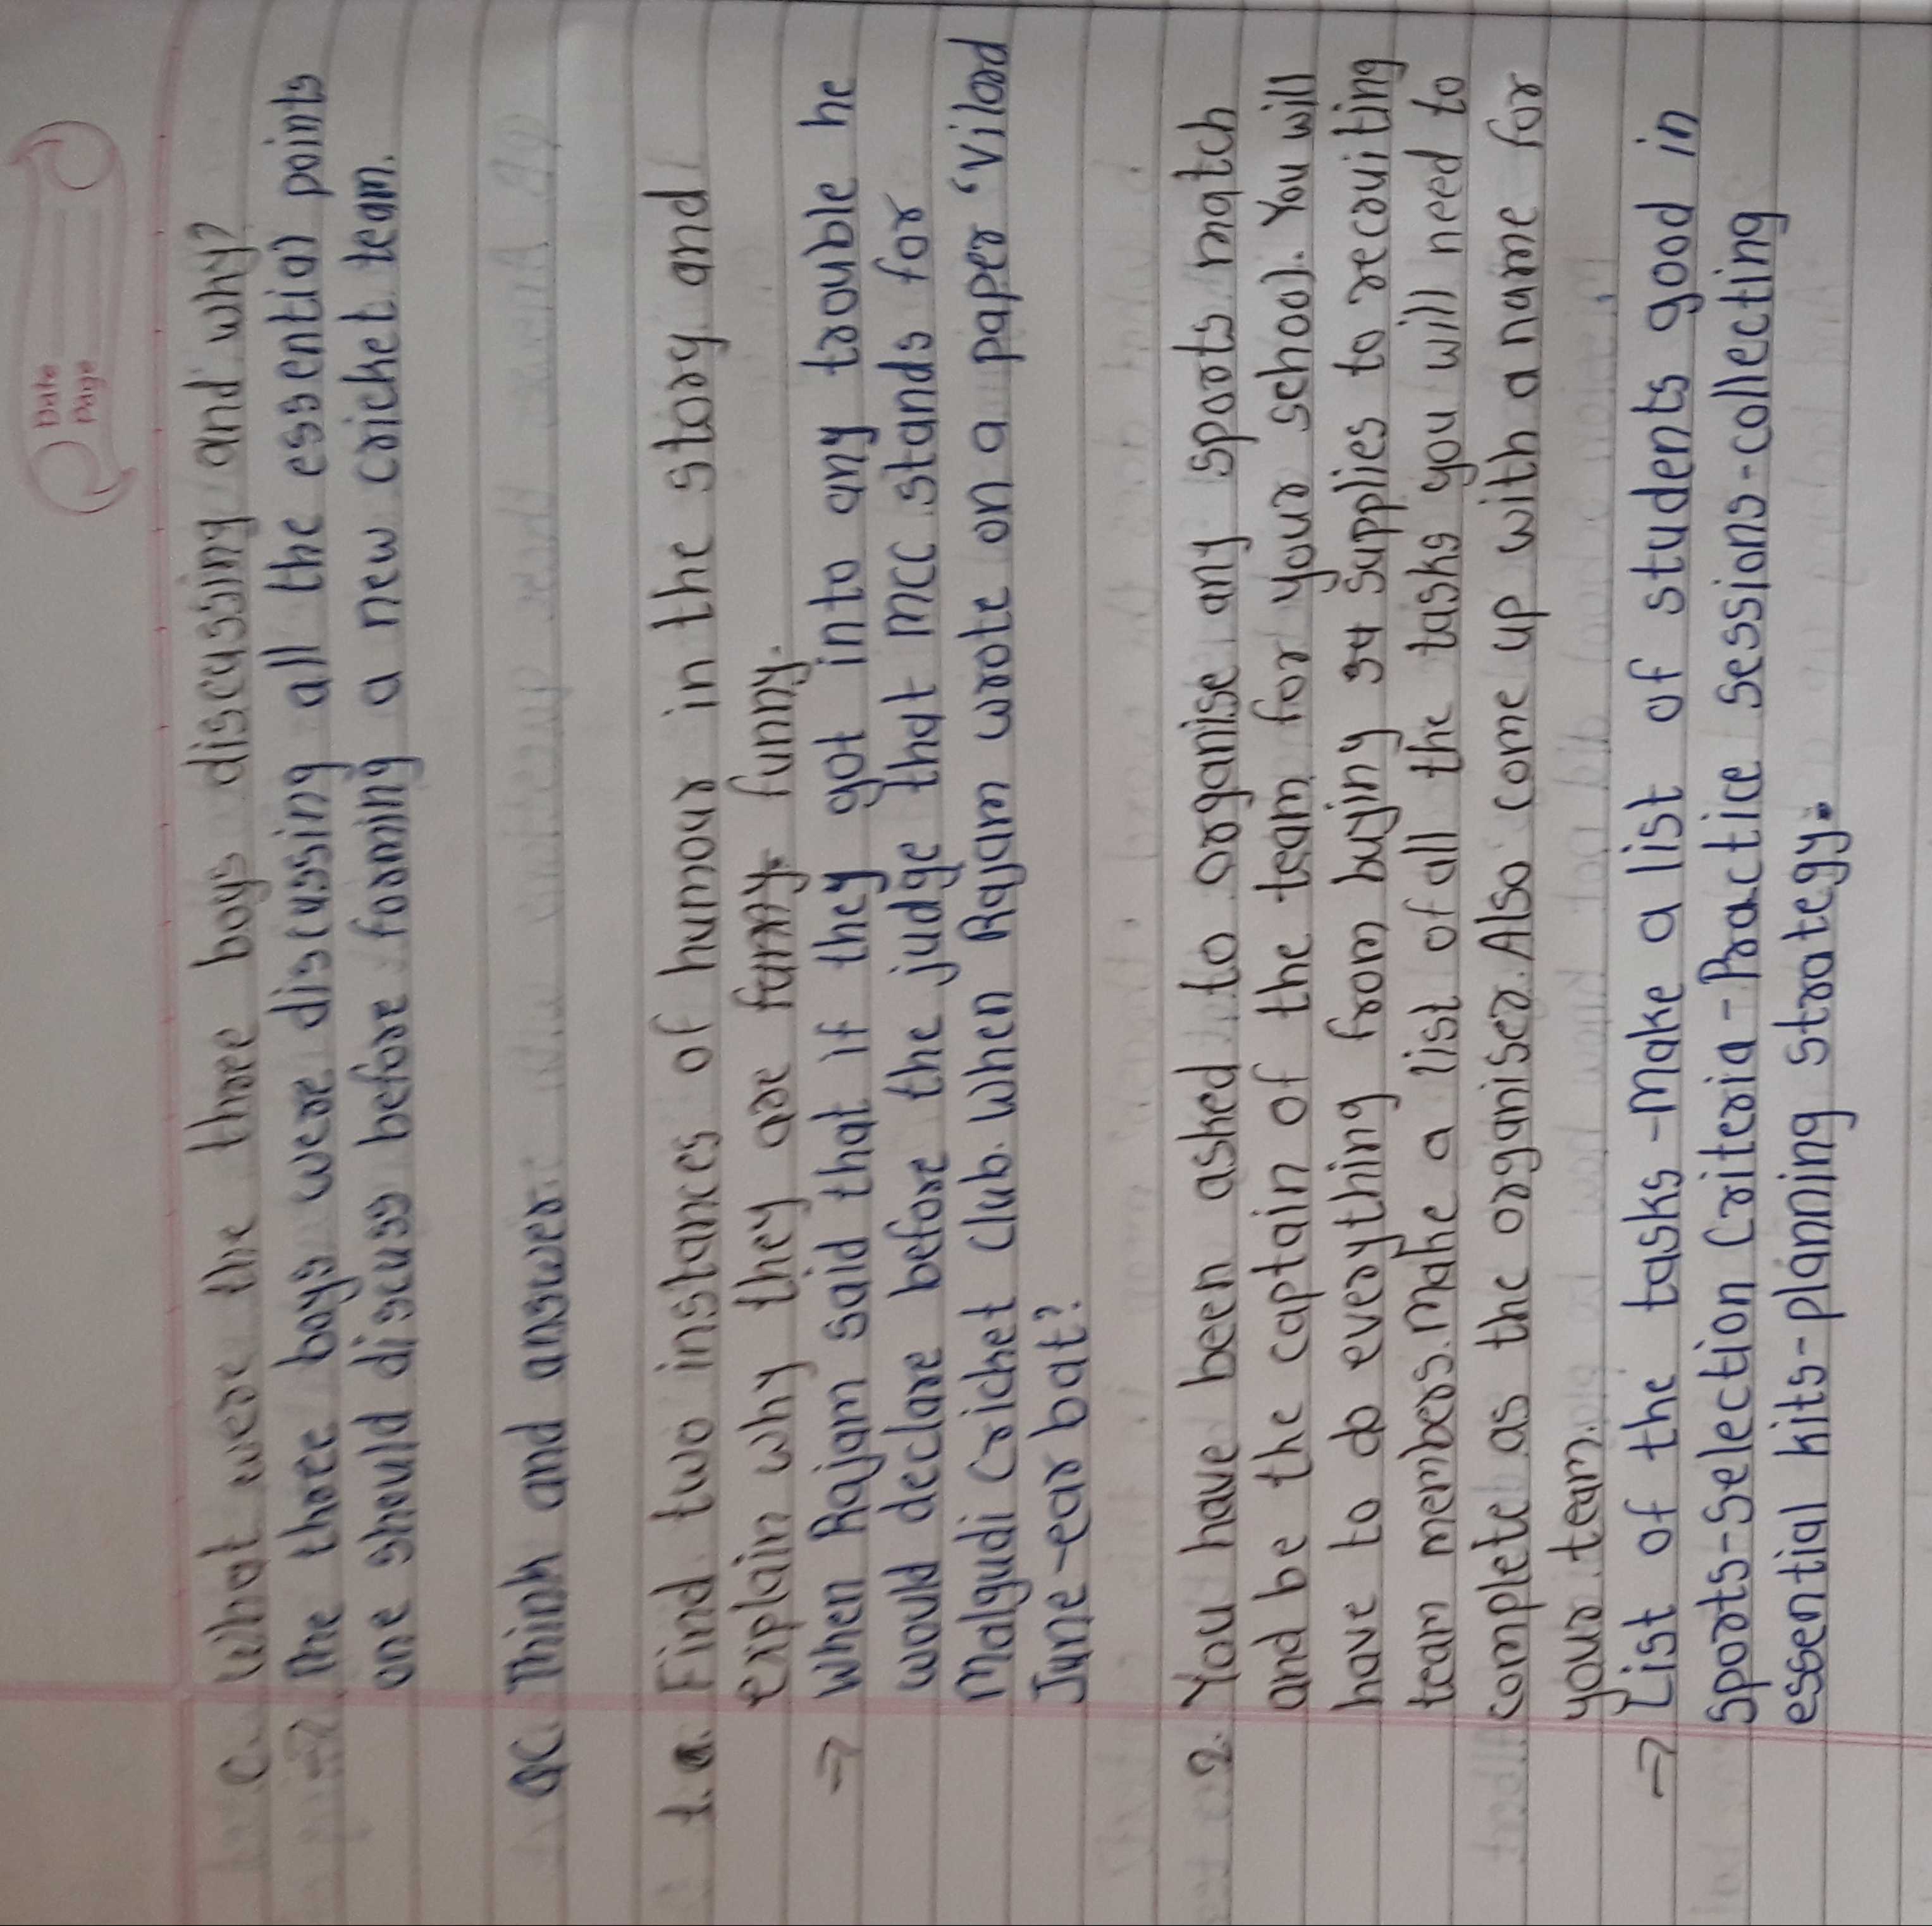 Date
Page
C. What were the three boys discussing and why?
→ The three boys were discussing all the essential points
one should discuss before forming a new cricket team.
QC. Think and answer.
1. a. Find two instances of humour in the story and
explain why they are funny. funny.
→ When Rajam said that if they got into any trouble he
would declare before the judge that MCC stands for
Malgudi Cricket Club. When Rajam wrote on a paper 'Vilord
June-ear bat?
2. You have been asked to organise any sports match
and be the captain of the team for your school. You will
have to do everything from buying su supplies to recruiting
team members. Make a list of all the tasks you will need to
complete as the organiser. Also come up with a name for
your team.
→ List of the tasks - Make a list of students good in
Sports-Selection Criteria - Practice sessions-collecting
essential kits-planning strategy.